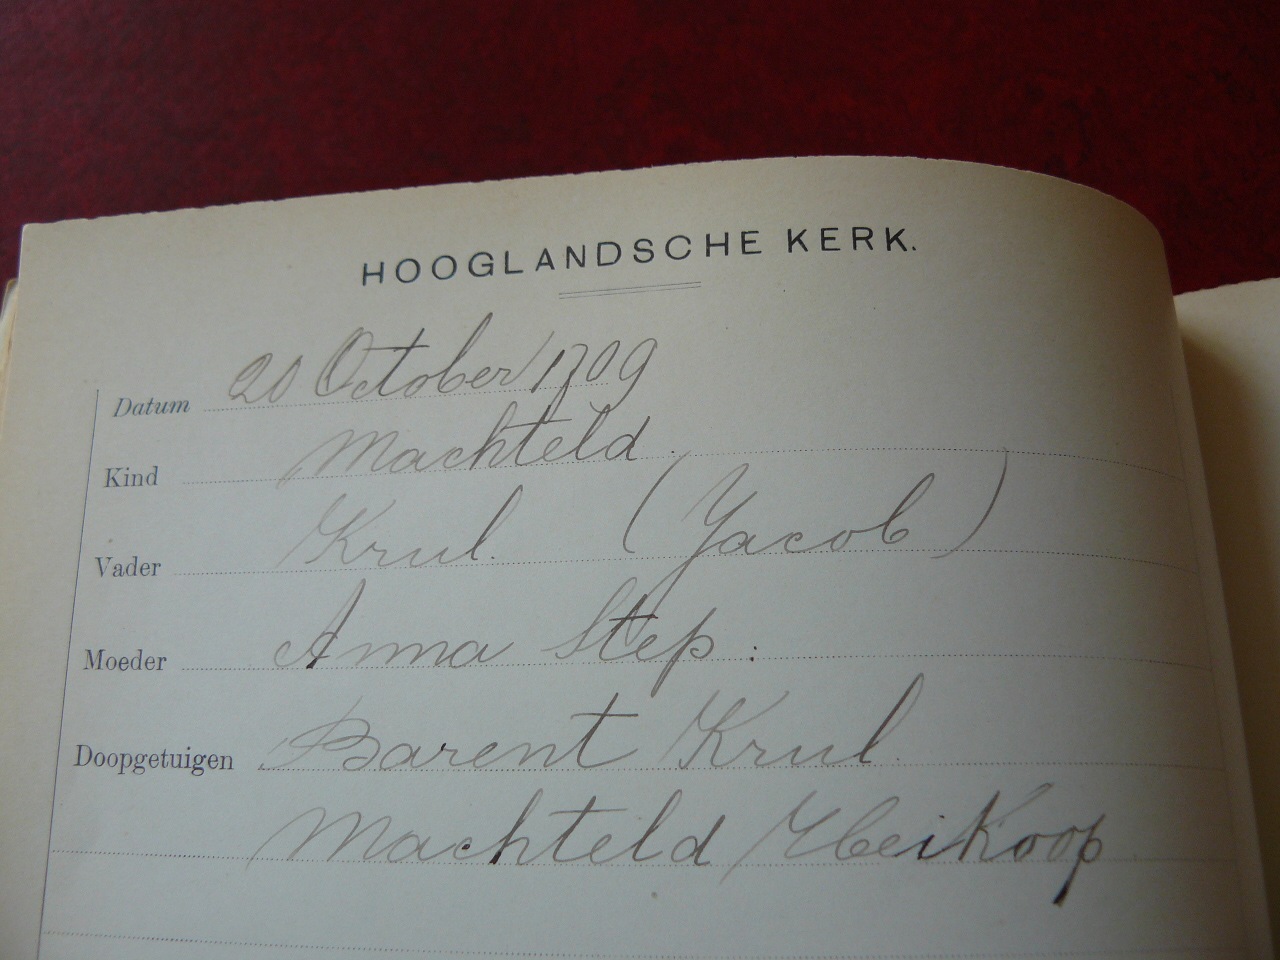 HOOGLANDSCHE KERK.
Datum 20 October 1709
Kind Machteld.
Vader Krul. (Jacob)
Moeder Anna Step:
Doopgetuigen Barent Krul.
Machteld Heikoop